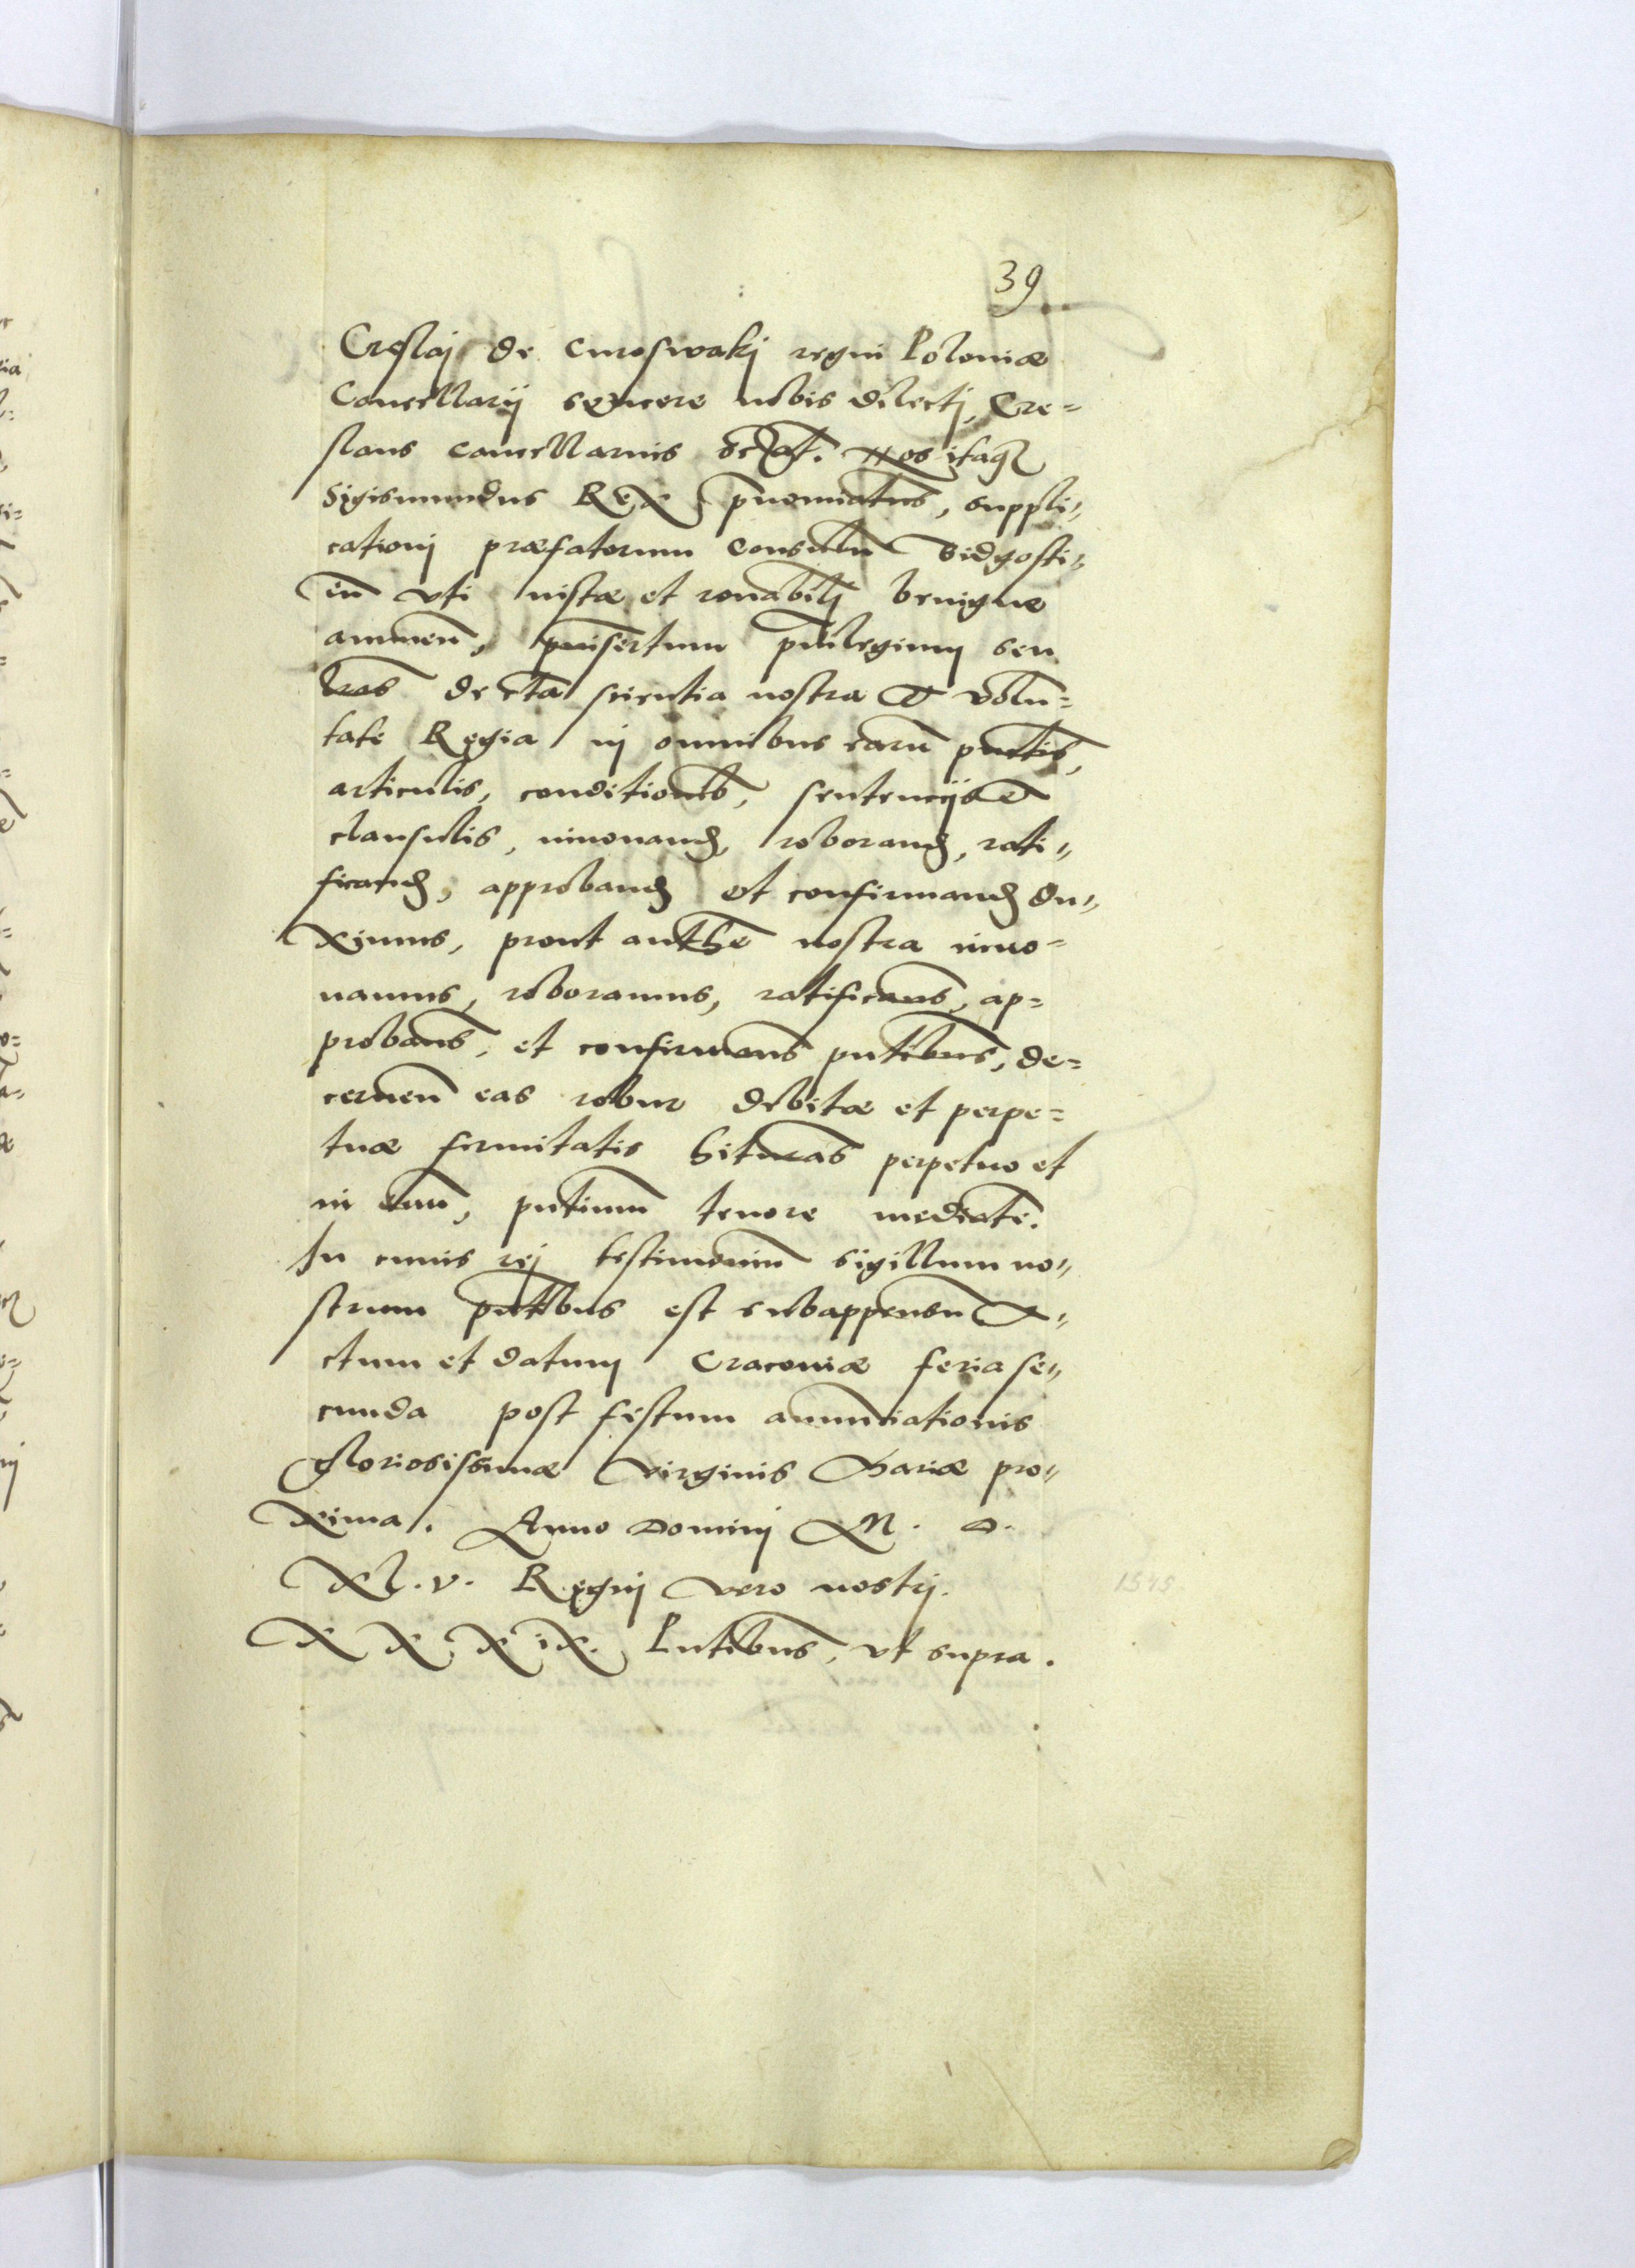 39
Creslaj de Curoswakj regni Poloniæ
Cancellarij syncere nobis dilectj, Cre=
slaus cancellarius sst. Nos itaq
Sigismundus Rex pnomiatus, suppli„
cationj præfatorum Consulu Bidgosti„
en uti iustæ et ronabilj benigne
annuen, pnisertum puilegium seu
lras de cta scientia nostra et volu=
tate Regia in omnibus earu puctis,
articulis, conditiobs, sentencijs et
clausulis, innouand, roborand, rati„
ficand, approband et confirmand du„
ximus, prout authe nostra inno=
uamus, roboramus, ratificams, ap=
probams, et confirmams pntibus, de=
cernen eas robur debitæ et perpe=
tuæ firmitatis hituras perpetuo et
in euu, pntium tenore mediate.
In cuius rej testimonium sigillum no„
strum pntibus est subappensu A„
ctum et datum Cracouiæ feria se„
cunda post festum anunciationis
Gloriosissimæ virginis Mariæ pro„
xima. Anno Dominj M. D.
Xl. v. Regnj vero nostrj.
X X X iX. Pntibus, ut supra.
1545